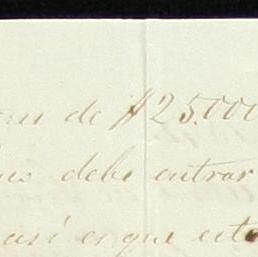 de $25.000
debe entrar
así es que este